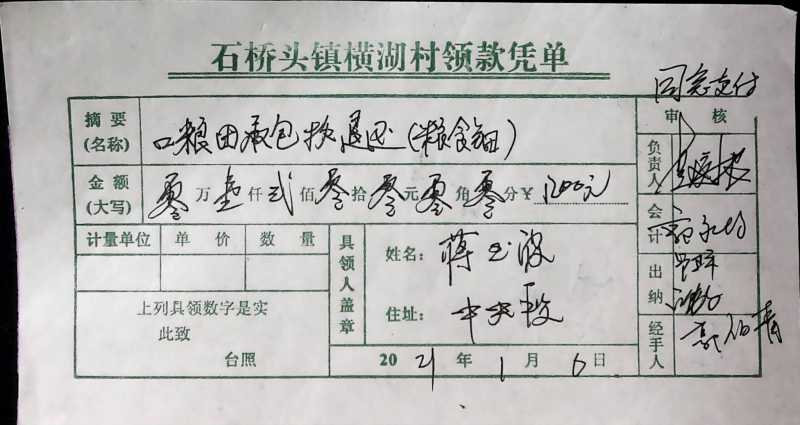 石桥头镇横湖村领款凭单
同意支付
摘要 口粮田承包款退还(粮食钿) 审核
(名称)
金额 零万壹仟贰佰零拾零元零角零分¥1200元 负责人
(大写)
计量单位 单价 数量 具领人盖章 姓名: 蒋 波 会计
住址: 中央段 出纳
上列具领数字是实
此致
台照 2021年1月6日 经手人